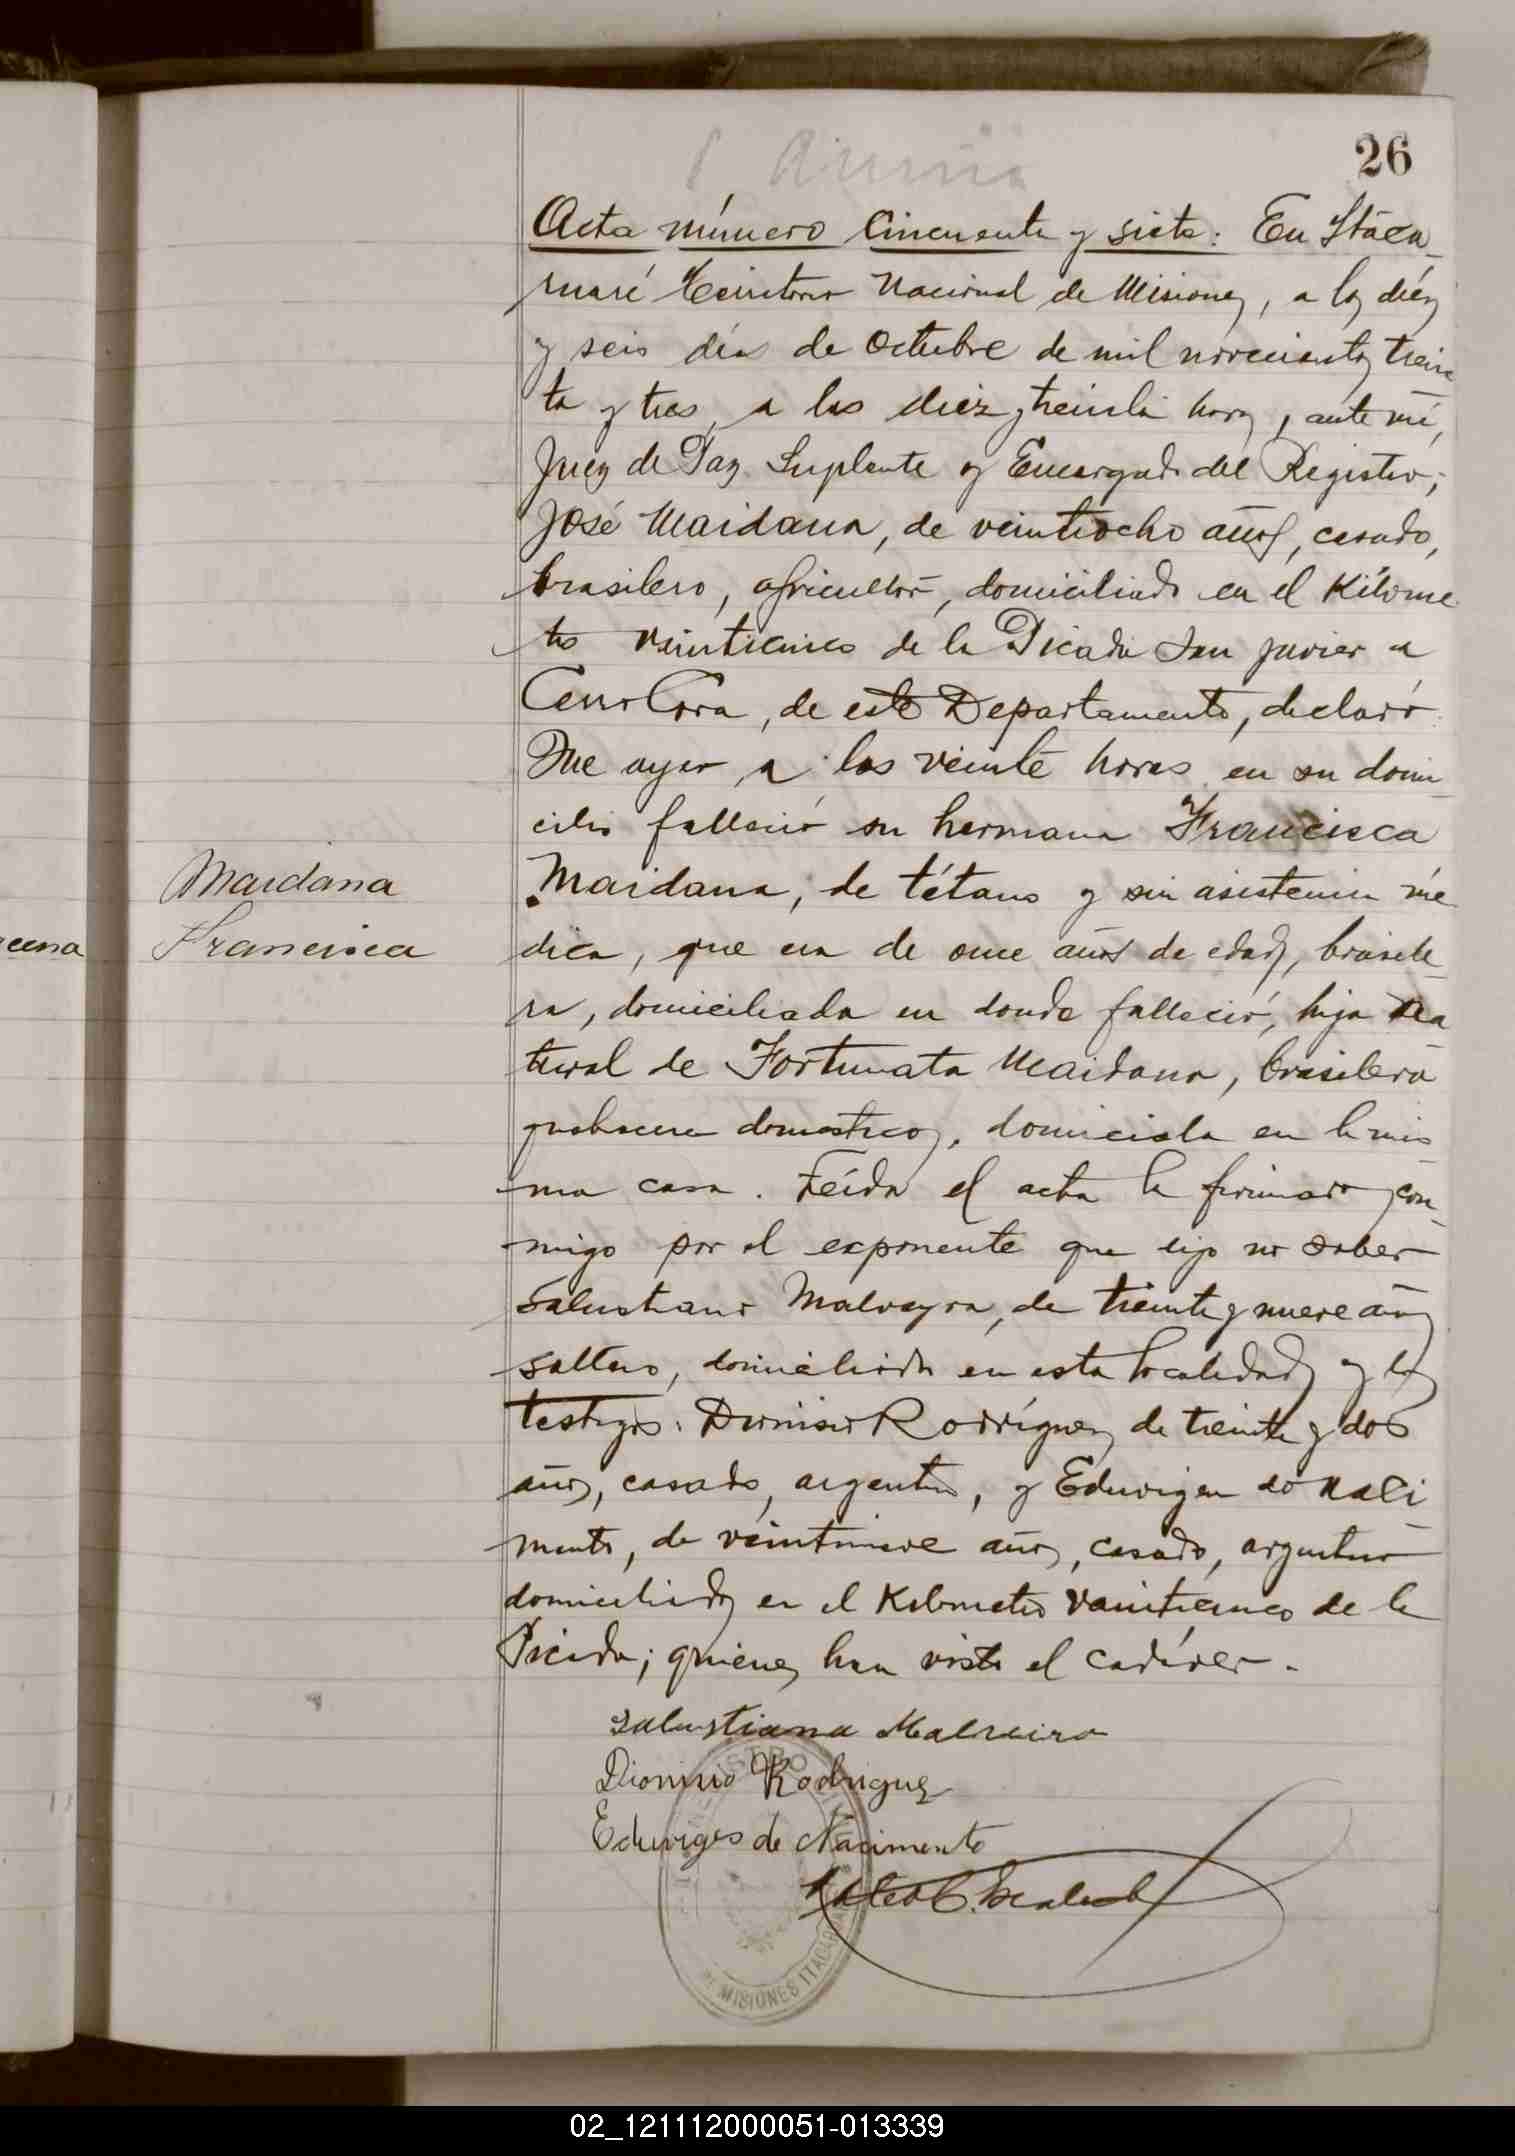 26
Acta número Cincuenta y siete: En Itaca-
ruaré Territorio Nacional de Misiones, a los diéz
y seis días de Octubre de mil novecientos trein
ta y tres, a las diez y treinta horas, ante mí,
Juez de Paz Suplente y Encargado del Registro;
José Maidana, de veintiocho años, casado,
brasilero, agricultor, domiciliado en el Kilome
tro veinticinco de la Picada San Javier a
Cerro Cora, de este Departamento, declaró:
Que ayer, a las veinte horas en su domi-
cilio falleció su hermana Francisca
Maidana
Maidana, de tétano y sin asistencia mé
Francisca
dica, que era de once años de edad, brasile-
ra, domiciliada en donde falleció, hija na
tural de Fortunata Maidana, brasilera
quehaceres domesticos, domiciada en la mis
ma casa. Leída el acta la firmaro con-
migo por el exponente que dijo no saber
Salustiano Malveyra, de treinta y nueve años
soltero, domiciliado en esta localidad y los
testigos: Dionisio Rodríguez de treinta y dos
años, casado, argentino, y Eduvigen do Naci
mento, de veintinueve años, casado, argentino
domiciliados en el Kilometro veinticinco de la
Picada; quienes han visto el cadáver.
Salustiano Malveira
Dionisio Rodriguez
Eduviges de Nacimento
REGISTRO CIVIL
MISIONES ITACARUARE
02_121112000051-013339